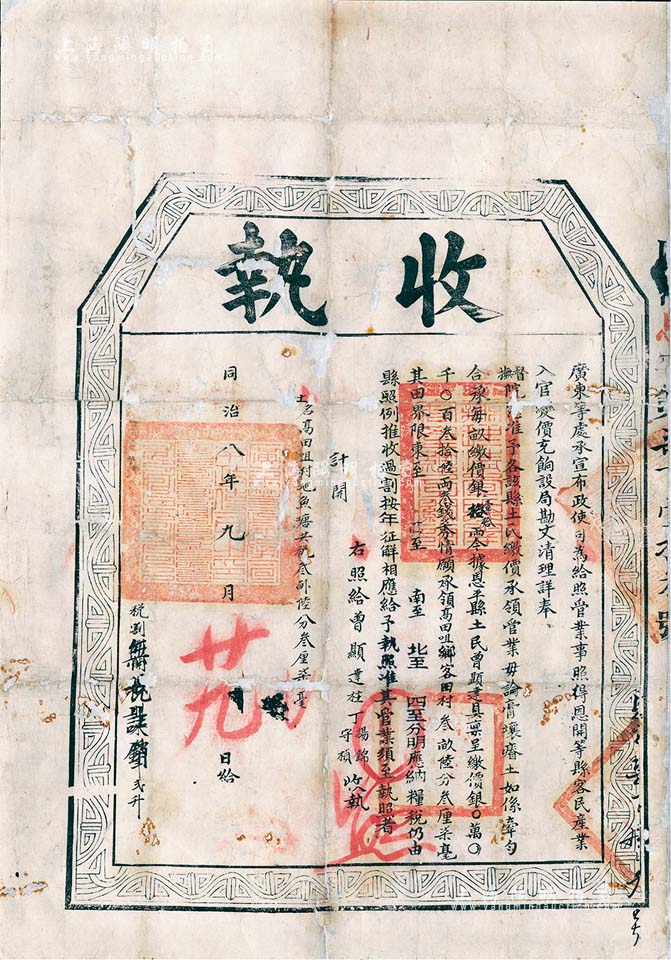 上海陽明拍賣
www.yangmingauction.com
執收
廣東等處承宣布政使司為給照管業事照得恩開等縣客民產業
入官變價充餉設局勘丈清理詳奉
督撫院 准予各該縣土民繳價承領管業毋論膏壤瘠土如係牽勻
合承每畝繳價銀 拾 兩今據恩平縣土民曾顯達具稟呈繳價銀〇萬〇
千〇百叁拾陸兩叁錢 情願承領高田咀鄉客田村 叁畝陸分叁厘柒毫
其田界限東至 西至 南至 北至 四至分明應納糧稅仍由
縣照例推收過割按年征解相應給予執照准其管業須至執照者
計開
右照給曾顯達 丁 楊錦 守楨 收執
土名高田咀村地魚塘共稅叁畝陸分叁厘柒毫
同治八年九月 廿九 日給
稅割